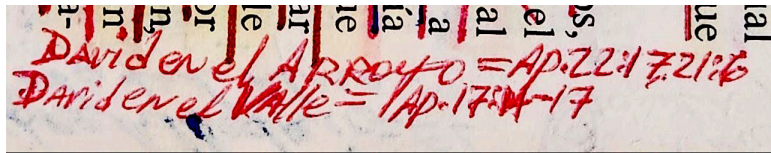 a-
n
n,
or
le
ar
ue
ía
a
al
el
os,
ue
al
David en el ARROYO = Ap. 22:17, 21:6
David en el Valle = Ap. 17:14-17